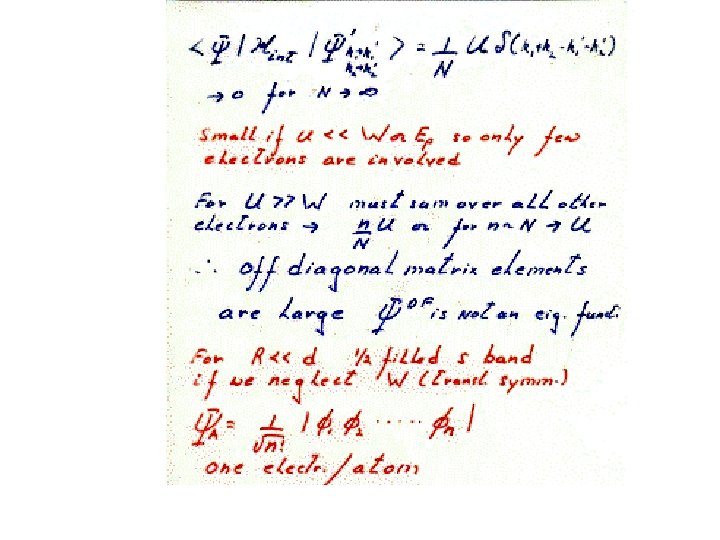 < Ψ | ℋint | Ψ'k₁→k₁' k₂→k₂' > = 1/N U δ(k₁+k₂-k₁'-k₂')
→ 0 for N → ∞
Small if U << W or EF so only few
electrons are involved
For U >> W must sum over all other
electrons → n/N U or for n~N → U
∴ off diagonal matrix elements
are large Ψ^DF is not an eig. funct.
For R << d ½ filled s band
if we neglect W (transl symm.)
ΨA = 1/√n! | ϕ₁ ϕ₂ ..... ϕn |
one electr./atom